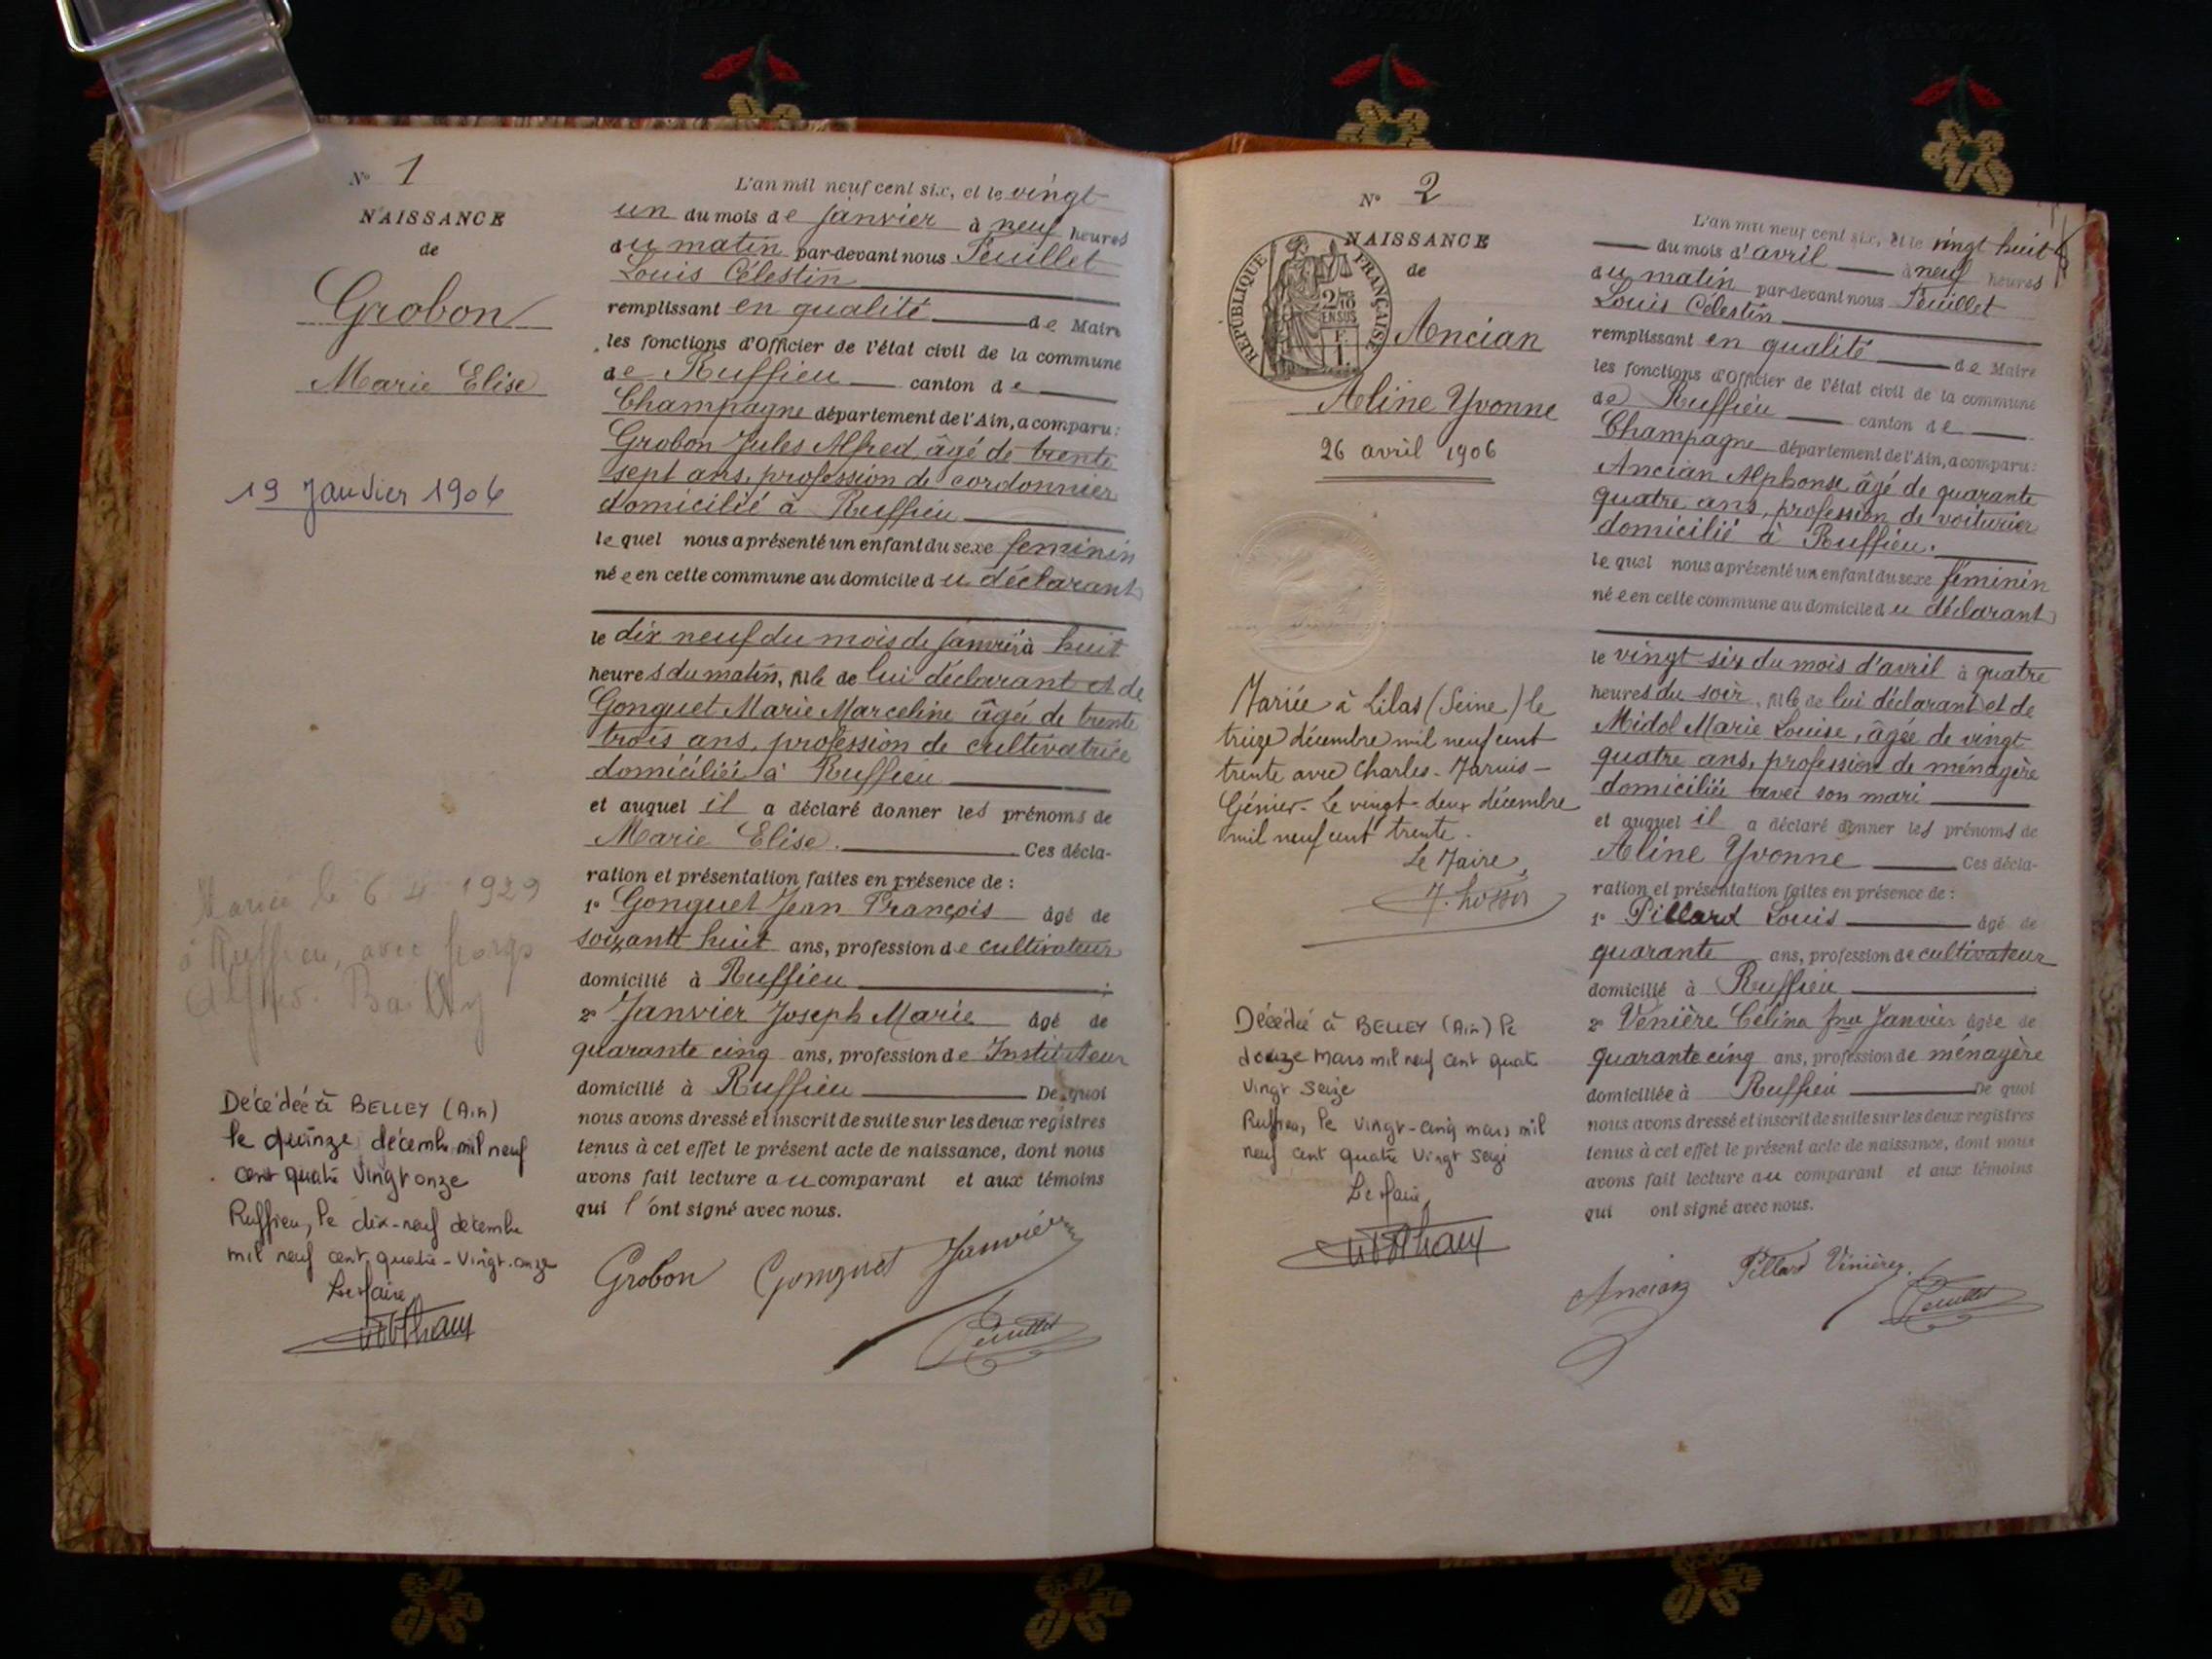 N° 1
NAISSANCE
de
Grobon
Marie Elise
19 Janvier 1906
Mariée le 6 4 1929
à Ruffieu, avec
Bailly
Décédée à BELLEY (Ain)
le quinze décembre mil neuf
cent quatre vingt onze
Ruffieu, le dix-neuf décembre
mil neuf cent quatre-vingt-onze
Le Maire,
L'an mil neuf cent six, et le vingt
un du mois de janvier à neuf heures
du matin par-devant nous Feuillet
Louis Célestin
remplissant en qualité de Maire
les fonctions d'Officier de l'état civil de la commune
de Ruffieu canton de
Champagne département de l'Ain, a comparu:
Grobon Jules Alfred âgé de trente
sept ans, profession de cordonnier
domicilié à Ruffieu
lequel nous a présenté un enfant du sexe feminin
née en cette commune au domicile du déclarant
le dix neuf du mois de janvier à huit
heures du matin, fille de lui déclarant et de
Gonguet Marie Marceline âgée de trente
trois ans, profession de cultivatrice
domiciliée à Ruffieu
et auquel il a déclaré donner les prénoms de
Marie Elise. Ces décla-
ration et présentation faites en présence de :
1° Gonguet Jean François âgé de
soixante huit ans, profession de cultivateur
domicilié à Ruffieu ;
2° Janvier Joseph Marie âgé de
quarante cinq ans, profession de Instituteur
domicilié à Ruffieu De quoi
nous avons dressé et inscrit de suite sur les deux registres
tenus à cet effet le présent acte de naissance, dont nous
avons fait lecture au comparant et aux témoins
qui l'ont signé avec nous.
Grobon Gonguet Janvier
Feuillet
N° 2
NAISSANCE
de
RÉPUBLIQUE FRANÇAISE
2/10 EN SUS
Ancian
Aline Yvonne
26 avril 1906
Mariée à Lilas (Seine) le
treize décembre mil neuf cent
trente avec Charles-Marius-
Génier. Le vingt-deux décembre
mil neuf cent trente.
Le Maire,
Décédée à BELLEY (Ain) le
douze mars mil neuf cent quatre
vingt seize
Ruffieu, le vingt-cinq mars mil
neuf cent quatre vingt seize
Le Maire,
L'an mil neuf cent six, et le vingt huit
du mois d'avril à neuf heures
du matin par-devant nous Feuillet
Louis Célestin
remplissant en qualité de Maire
les fonctions d'Officier de l'état civil de la commune
de Ruffieu canton de
Champagne département de l'Ain, a comparu:
Ancian Alphonse âgé de quarante
quatre ans, profession de voiturier
domicilié à Ruffieu.
lequel nous a présenté un enfant du sexe féminin
née en cette commune au domicile du déclarant
le vingt six du mois d'avril à quatre
heures du soir, fille de lui déclarant et de
Midol Marie Louise, âgée de vingt
quatre ans, profession de ménagère
domiciliée avec son mari
et auquel il a déclaré donner les prénoms de
Aline Yvonne Ces décla-
ration et présentation faites en présence de :
1° Pillard Louis âgé de
quarante ans, profession de cultivateur
domicilié à Ruffieu
2° Venière Célina fme Janvier âgée de
quarante cinq ans, profession de ménagère
domiciliée à Ruffieu De quoi
nous avons dressé et inscrit de suite sur les deux registres
tenus à cet effet le présent acte de naissance, dont nous
avons fait lecture au comparant et aux témoins
qui ont signé avec nous.
Ancian Pillard Vénière
Feuillet